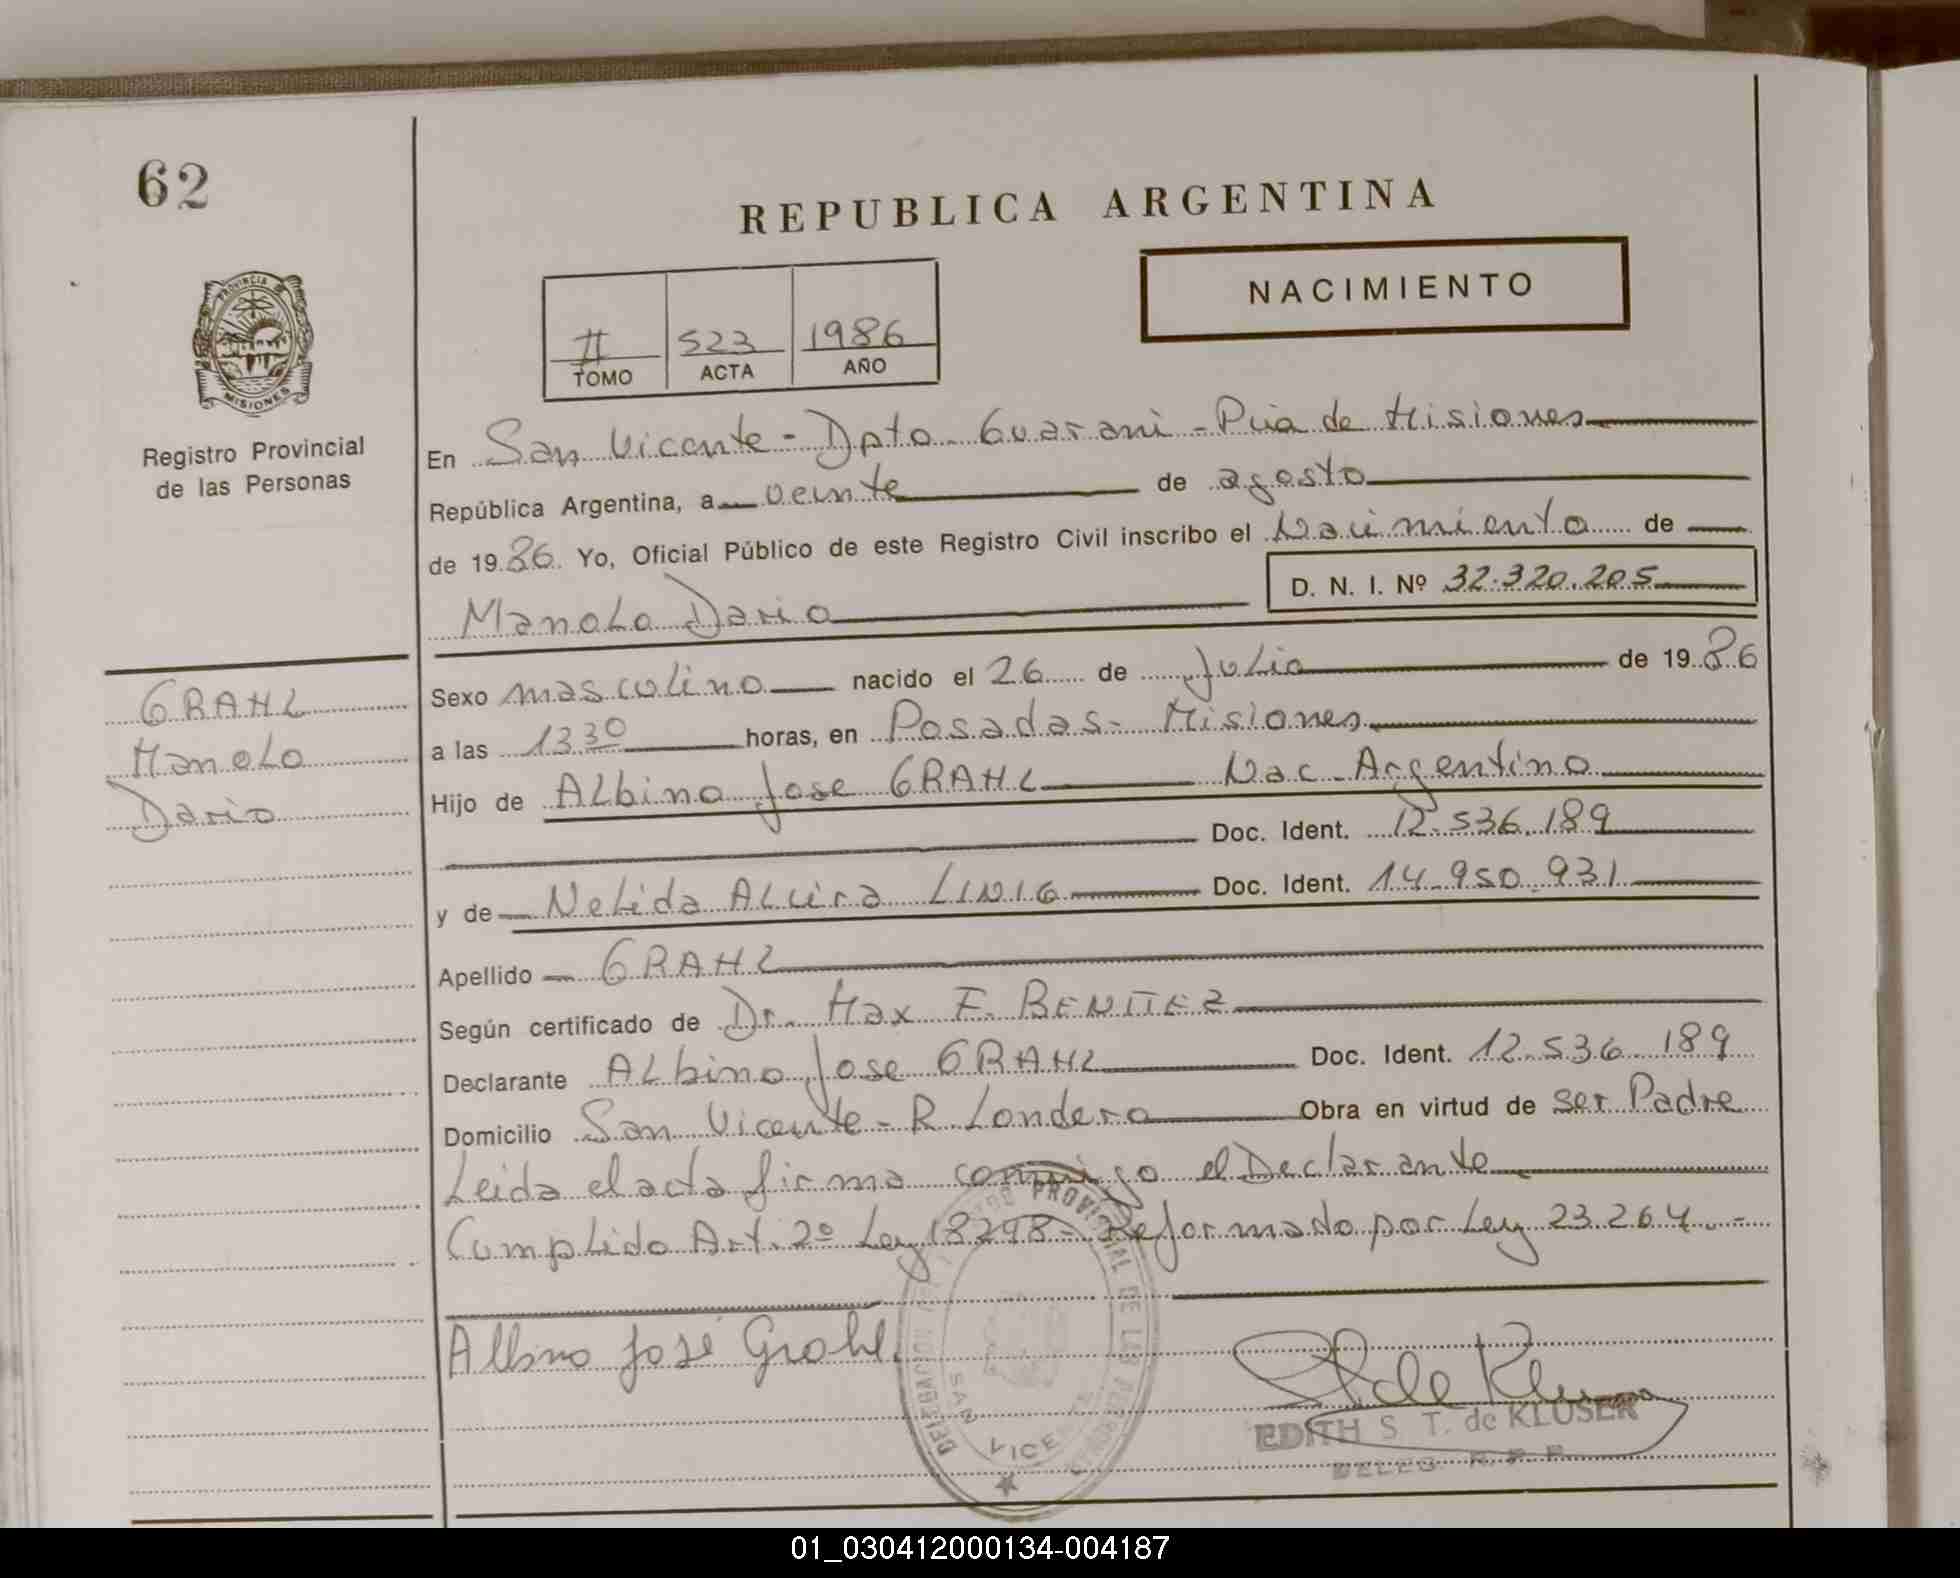 62
REPUBLICA ARGENTINA
NACIMIENTO
PROVINCIA
MISIONES
II 523 1986
TOMO ACTA AÑO
Registro Provincial
de las Personas
En San Vicente - Dpto. Guarani - Pcia de Misiones
República Argentina, a veinte de agosto
de 1986. Yo, Oficial Público de este Registro Civil inscribo el Nacimiento de
D. N. I. Nº 32.320.205
Manolo Dario
GRAHL
Manolo
Dario
Sexo masculino nacido el 26 de Julio de 1986
a las 13 30 horas, en Posadas - Misiones
Hijo de Albino Jose GRAHL Nac. Argentino
Doc. Ident. 12.536.189
y de Nelida Alcira LINIG Doc. Ident. 14.950.931
Apellido GRAHL
Según certificado de Dr. Max F. BENITEZ
Declarante Albino Jose GRAHL Doc. Ident. 12.536.189
Domicilio San Vicente - R. Londero Obra en virtud de ser Padre
Leida el acta firma conmigo el Declarante
Cumplido Art. 2º Ley 18248 - Reformado por Ley 23.264. -
Albino José Grahl.
PROVINCIAL DE LAS PERSONAS
DELEGACION
SAN VICENTE
de Kluser
EDITH S. T. de KLUSER
DELEG. R. P. P.
01_030412000134-004187